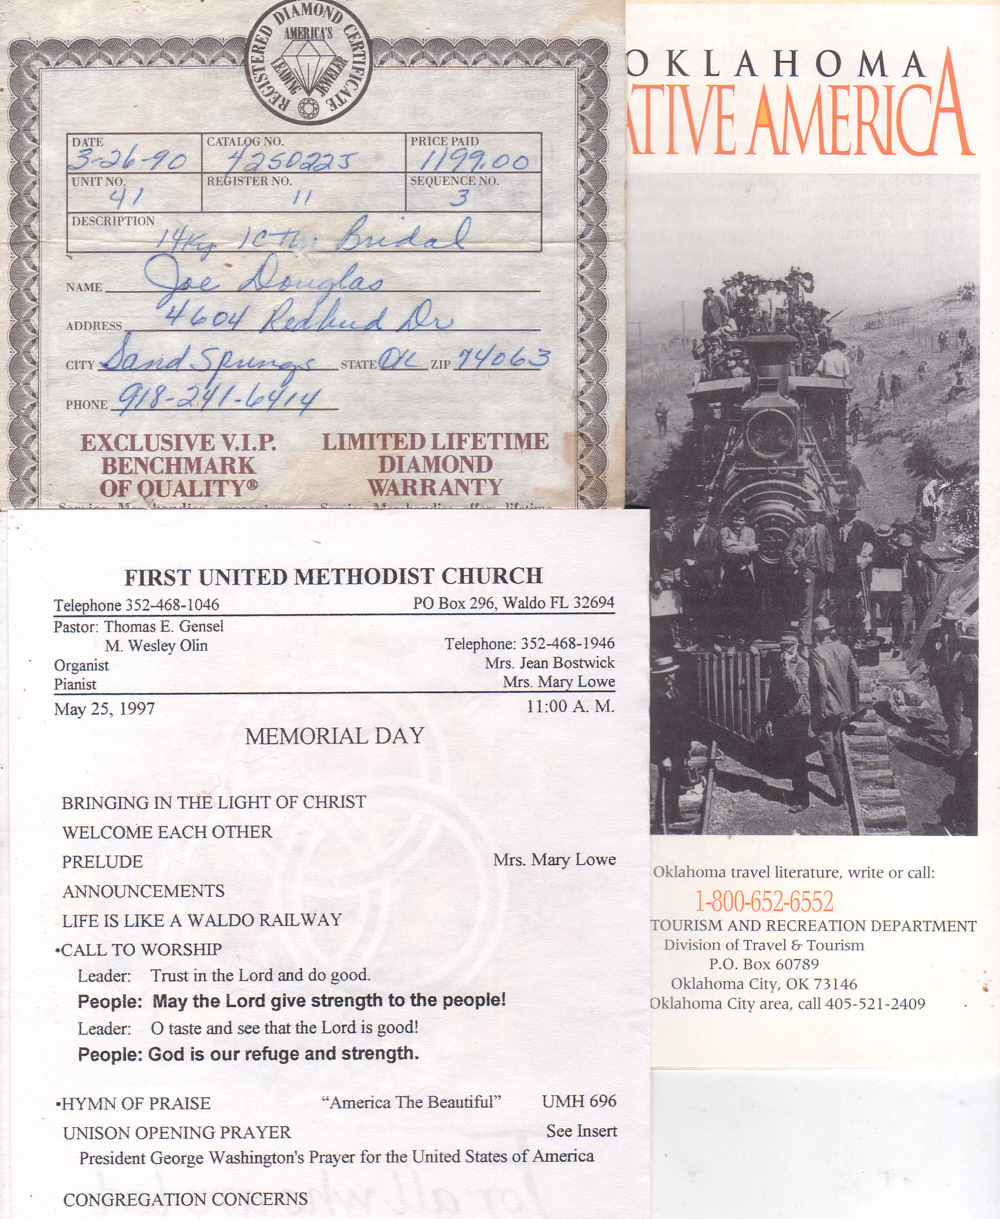 REGISTERED DIAMOND CERTIFICATE
AMERICA'S
LEADING JEWELER
DATE CATALOG NO. PRICE PAID
3-26-90 4250225 1199.00
UNIT NO. REGISTER NO. SEQUENCE NO.
41 11 3
DESCRIPTION
Bridal
NAME Joe Douglas
ADDRESS 4604 Redbud Dr
CITY Sand Springs STATE OK ZIP 74063
PHONE 918-241-6414
EXCLUSIVE V.I.P.
BENCHMARK
OF QUALITY®
LIMITED LIFETIME
DIAMOND
WARRANTY
OKLAHOMA
ATIVE AMERICA
Oklahoma travel literature, write or call:
1-800-652-6552
TOURISM AND RECREATION DEPARTMENT
Division of Travel & Tourism
P.O. Box 60789
Oklahoma City, OK 73146
Oklahoma City area, call 405-521-2409
FIRST UNITED METHODIST CHURCH
Telephone 352-468-1046 PO Box 296, Waldo FL 32694
Pastor: Thomas E. Gensel
M. Wesley Olin Telephone: 352-468-1946
Organist Mrs. Jean Bostwick
Pianist Mrs. Mary Lowe
May 25, 1997 11:00 A. M.
MEMORIAL DAY
BRINGING IN THE LIGHT OF CHRIST
WELCOME EACH OTHER
PRELUDE Mrs. Mary Lowe
ANNOUNCEMENTS
LIFE IS LIKE A WALDO RAILWAY
•CALL TO WORSHIP
Leader: Trust in the Lord and do good.
People: May the Lord give strength to the people!
Leader: O taste and see that the Lord is good!
People: God is our refuge and strength.
•HYMN OF PRAISE “America The Beautiful” UMH 696
UNISON OPENING PRAYER See Insert
President George Washington's Prayer for the United States of America
CONGREGATION CONCERNS